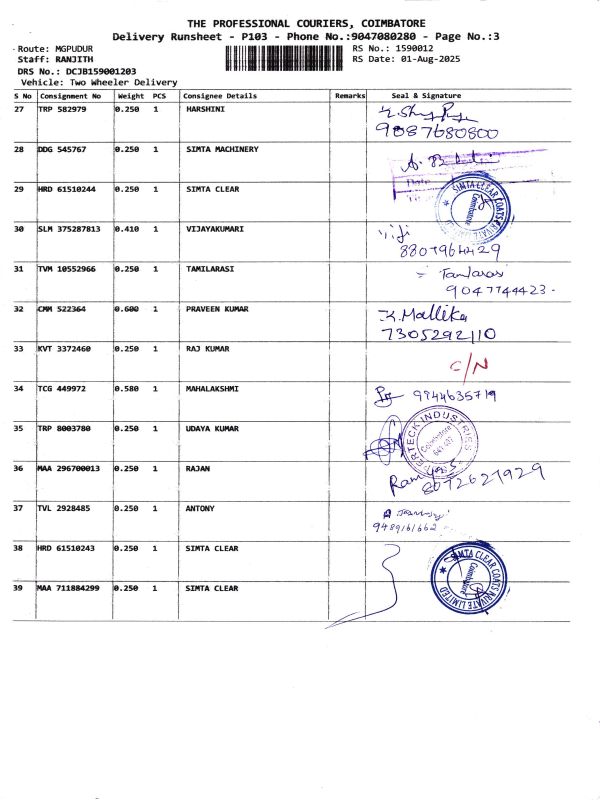 THE PROFESSIONAL COURIERS, COIMBATORE
Delivery Runsheet - P103 - Phone No.:9047080280 - Page No.:3
Route: MGPUDUR RS No.: 1590012
Staff: RANJITH RS Date: 01-Aug-2025
DRS No.: DCJB159001203
Vehicle: Two Wheeler Delivery
S No Consignment No Weight PCS Consignee Details Remarks Seal & Signature
27 TRP 582979 0.250 1 HARSHINI
9087680800
28 DDG 545767 0.250 1 SIMTA MACHINERY
29 HRD 61510244 0.250 1 SIMTA CLEAR
SIMTA CLEAR COATS PRIVATE LIMITED
Coimbatore
30 SLM 375287813 0.410 1 VIJAYAKUMARI
Viji
8807964429
31 TVM 10552966 0.250 1 TAMILARASI
9047744423
32 CMM 522364 0.600 1 PRAVEEN KUMAR
K.Mallika
7305292110
33 KVT 3372460 0.250 1 RAJ KUMAR
C/N
34 TCG 449972 0.580 1 MAHALAKSHMI
9844635719
35 TRP 8003780 0.250 1 UDAYA KUMAR
INDUSTRIES
Coimbatore
36 MAA 296700013 0.250 1 RAJAN
8072621929
37 TVL 2928485 0.250 1 ANTONY
9489161662
38 HRD 61510243 0.250 1 SIMTA CLEAR
SIMTA CLEAR COATS PRIVATE LIMITED
Coimbatore
39 MAA 711884299 0.250 1 SIMTA CLEAR